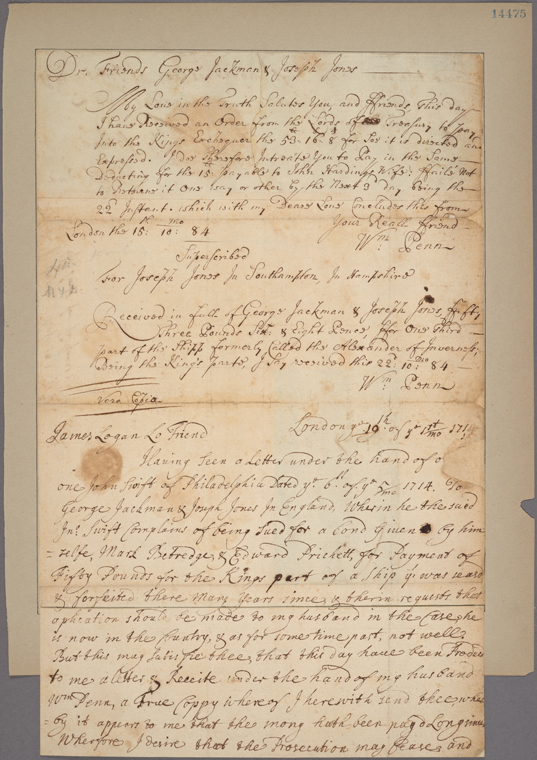 14475
Dr. Friends George Jackman & Joseph Jones
My Love in the Truth Salutes You, and ffriends, This day
I have Received an Order from the Lords of the Treasury to pay
Into the Kings Exchequer the 53 - 16 - 8 for So it is directed and
Expressed. I doe therefore Intreate You to Pay in the Same
Deducting for the 15 payable to John Hardings Wife: ffaile Not
to Returne it One way or other by the Next 3 day being the
22d Instant: which with my Deare Love Concludes this from
Your Reall ffriend
London the 15th: 10mo: 84
Wm Penn
Superscribed
For Joseph Jones In Southampton, In Hampshire
Received in full of George Jackman & Joseph Jones, fifty
Three Pounds & Eight Pence ffor One Third
part of the Shipp formerly Called the Alexander of Inverness,
Being the King's Parte, I Say received this 22d: 10mo 84
Wm Penn
vera Copia
London ye 19th of ye 1st mo 1714
James Logan Lo Friend
Having Seen a Letter under the hand of o
one John Swift of Philadelphia Dated ye 6th of ye 5 mo 1714. To
George Jackman & Joseph Jones In England, Wherein he the said
Jno Swift Complains of being Sued for a bond Given by him
=selfe, Mark Betredge, & Edward Prickett, for Payment of
Fifty Pounds for the Kings part of a Ship yt was seasd
& forfeited there Many Years since, & therin requests that
aplication should be made to my husband in the Case, he
is now in the Country, & as for sometime past, not well,
But this may Satisfie thee, that this day have been Produced
to me a letter & Receite under the hand of my husband
Wm Penn, a True Coppy whereof I herewith send thee, where
=by it appears to me that the mony hath been payd Long since
Wherefore I desire that the Prosecution may Cease, and